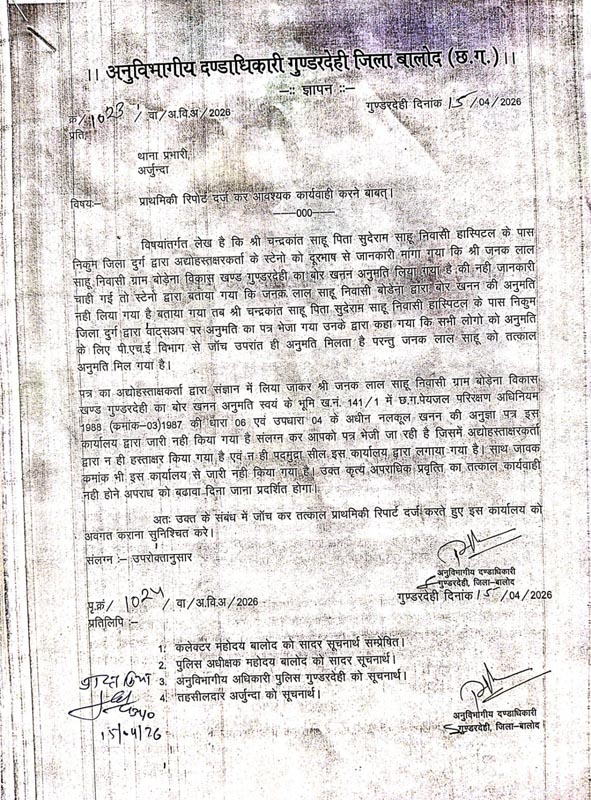 ।। अनुविभागीय दण्डाधिकारी गुण्डरदेही जिला बालोद (छ.ग.)।।
—:: ज्ञापन ::—
क्र/1023/वा/अ.वि.अ/2026 गुण्डरदेही दिनांक 15/04/2026
प्रति,
थाना प्रभारी,
अर्जुन्दा
विषय:— प्राथमिकी रिपोर्ट दर्ज कर आवश्यक कार्यवाही करने बाबत्।
——000——
विषयांतर्गत लेख है कि श्री चन्द्रकांत साहू पिता सुदेराम साहू निवासी हास्पिटल के पास
निकुम जिला दुर्ग द्वारा अद्योहस्ताक्षरकर्ता के स्टेनो को दूरभाष से जानकारी मांगा गया कि श्री जनक लाल
साहू निवासी ग्राम बोड़ेना विकास खण्ड गुण्डरदेही का बोर खनन अनुमति लिया गया है की नही जानकारी
चाही गई तो स्टेनो द्वारा बताया गया कि जनक लाल साहू निवासी बोडेना द्वारा बोर खनन की अनुमति
नही लिया गया है बताया गया तब श्री चन्द्रकांत साहू पिता सुदेराम साहू निवासी हास्पिटल के पास निकुम
जिला दुर्ग द्वारा वाट्सअप पर अनुमति का पत्र भेजा गया उनके द्वारा कहा गया कि सभी लोगो को अनुमति
के लिए पी.एच.ई विभाग से जॉच उपरांत ही अनुमति मिलता है परन्तु जनक लाल साहू को तत्काल
अनुमति मिल गया है।
पत्र का अद्योहस्ताक्षकर्ता द्वारा संज्ञान में लिया जाकर श्री जनक लाल साहू निवासी ग्राम बोड़ेना विकास
खण्ड गुण्डरदेही का बोर खनन अनुमति स्वयं के भूमि ख.नं. 141/1 में छ.ग.पेयजल परिरक्षण अधिनियम
1988 (क्रमांक—03)1987 की धारा 06 एवं उपधारा 04 के अधीन नलकूल खनन की अनुज्ञा पत्र इस
कार्यालय द्वारा जारी नही किया गया है संलग्न कर आपको पत्र भेजी जा रही है जिसमें अद्योहस्ताक्षरकर्ता
द्वारा न ही हस्ताक्षर किया गया है एवं न ही पदमुद्रा सील इस कार्यालय द्वारा लगाया गया है। साथ जावक
क्रमांक भी इस कार्यालय से जारी नंही किया गया है। उक्त कृत्य अपराधिक प्रवृत्ति का तत्काल कार्यवाही
नही होने अपराध को बढावा दिना जाना प्रदर्शित होगा।
अतः उक्त के संबंध में जॉच कर तत्काल प्राथमिकी रिपोर्ट दर्ज करते हुए इस कार्यालय को
अवगत कराना सुनिश्चित करे।
संलग्न :— उपरोक्तानुसार
अनुविभागीय दण्डाधिकारी
गुण्डरदेही, जिला—बालोद
पृ.क्रं/1024/वा/अ.वि.अ/2026 गुण्डरदेही दिनांक 15/04/2026
प्रतिलिपि :—
1. कलेक्टर महोदय बालोद को सादर सूचनार्थ सम्प्रेषित।
2. पुलिस अधीक्षक महोदय बालोद को सादर सूचनार्थ।
3. अनुविभागीय अधिकारी पुलिस गुण्डरदेही को सूचनार्थ।
4. तहसीलदार अर्जुन्दा को सूचनार्थ।
15/04/26
अनुविभागीय दण्डाधिकारी
गुण्डरदेही, जिला—बालोद